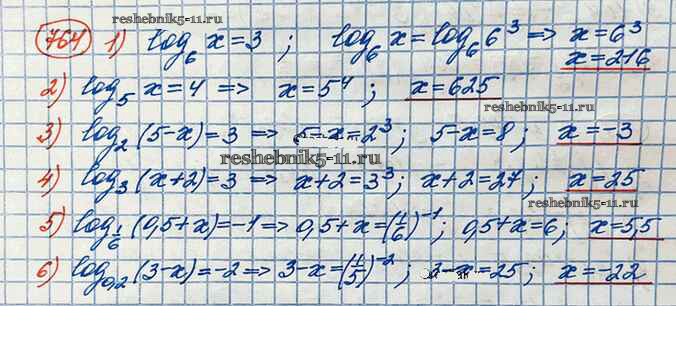 reshebnik5-11.ru
764 1) log₆ x = 3 ; log₆ x = log₆ 6³ => x = 6³
x = 216
2) log₅ x = 4 => x = 5⁴ ; x = 625
reshebnik5-11.ru
3) log₂ (5-x) = 3 => 5-x = 2³ ; 5-x = 8 ; x = -3
reshebnik5-11.ru
4) log₃ (x+2) = 3 => x+2 = 3³ ; x+2 = 27 ; x = 25
reshebnik5-11.ru
5) log_{1/6} (0,5+x) = -1 => 0,5+x = (1/6)⁻¹ ; 0,5+x = 6 ; x = 5,5
6) log_{0,2} (3-x) = -2 => 3-x = (1/5)⁻² ; 3-x = 25 ; x = -22